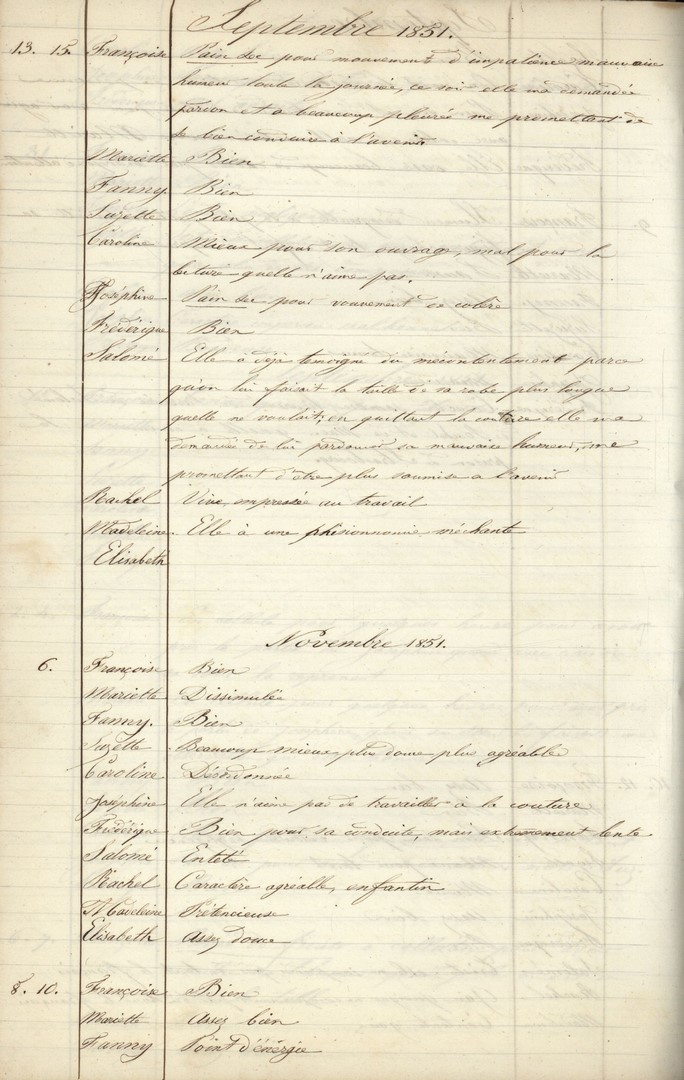 Septembre 1851.
13. 15. Françoise Pain sec pour mouvement d'impatience mauvaise
humeur toute la journée, ce soir elle m'a demandée
pardon et a beaucoup pleurée me promettant de
se bien conduire à l'avenir
Mariette Bien
Fanny. Bien
Suzette Bien
Caroline Mieux pour son ouvrage, mal pour la
lecture quelle n'aime pas.
Joséphine Pain sec pour mouvement de colère
Frédérique Bien
Salomé Elle à déjà temoigne du mécontentement parce
qu'on lui faisait la taille de sa robe plus longue
quelle ne voulait; en quittant la couture elle m'a
demandée de lui pardonner sa mauvaise humeur, me
promettant d'être plus soumise a l'avenir
Rachel Vive, empressée au travail
Madeleine. Elle à une phisionnomie méchante
Elisabeth
Novembre 1851.
6. Françoise Bien
Mariette Dissimulée
Fanny. Bien
Suzette Beaucoup mieux plus douce plus agréable
Caroline Désordonnée
Joséphine Elle n'aime pas de travailler à la couture
Frédérique Bien pour sa conduite, mais extremement lente
Salomé Enteté
Rachel Caractère agréable, enfantin
Madeleine Prétencieuse
Elisabeth Assez douce
8. 10. Françoise Bien
Mariette Assez bien
Fanny Point d'énergie